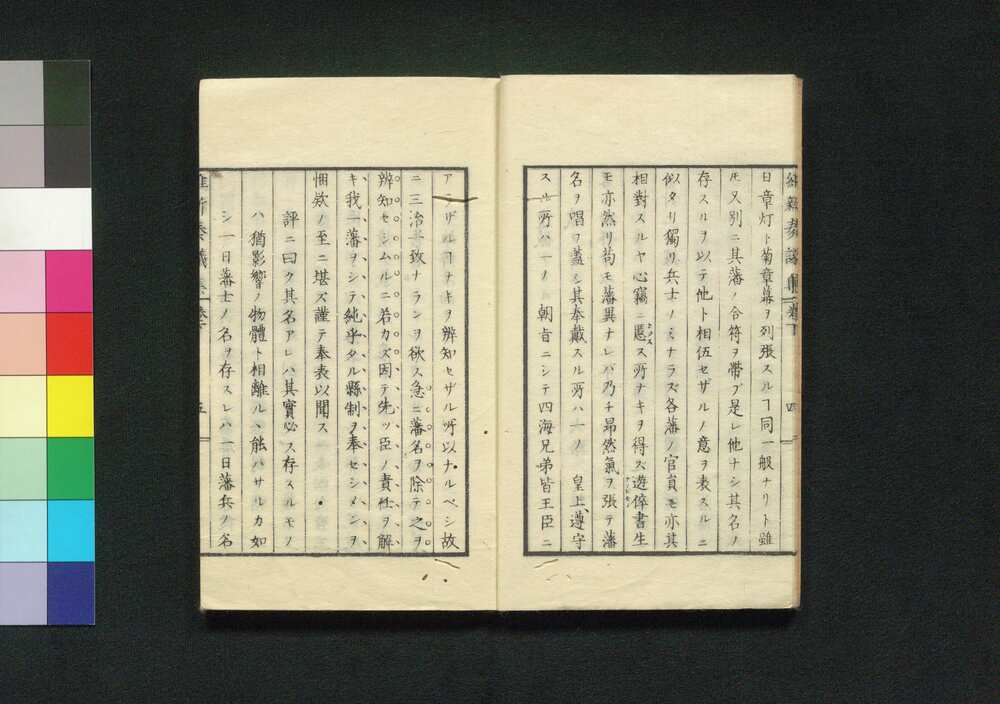 日章灯ト菊章幕ヲ列張スルヿ同一般ナリト雖
𪜈又別ニ其藩ノ合符ヲ帶ブ是レ他ナシ其名ノ
存スルヲ以テ他ト相伍セザルノ意ヲ表スルニ
似タリ獨リ兵士ノミナラズ各藩ノ官員モ亦其
相對スルヤ心竊ニ慝ス所ナキヲ得ズ遊倅書生
モ亦然リ苟モ藩異ナレバ乃チ昂然氣ヲ張テ藩
名ヲ唱ヲ蓋シ其奉戴スル所ハ一ノ 皇上遵守
スル所ハ一ノ 朝旨ニシテ四海兄弟皆王臣ニ
四
アラザルヿナキヲ辨知セザル所以ナルベシ故
ニ三治一致ナランヲ欲ス急ニ藩名ヲ除テ之ヲ
辨知セシムルニ若カズ因テ先ッ臣ノ責任ヲ解
キ我一藩ヲシテ純乎タル縣制ヲ奉セシメンヲ
悃欵ノ至ニ堪ズ謹テ奉表以聞ス
評ニ曰ク其名アレハ其實必ス存スルモノ
ハ猶影響ノ物體ト相離ルヽ能ハサルカ如
シ一日藩士ノ名ヲ存スレハ一日藩兵ノ名
五